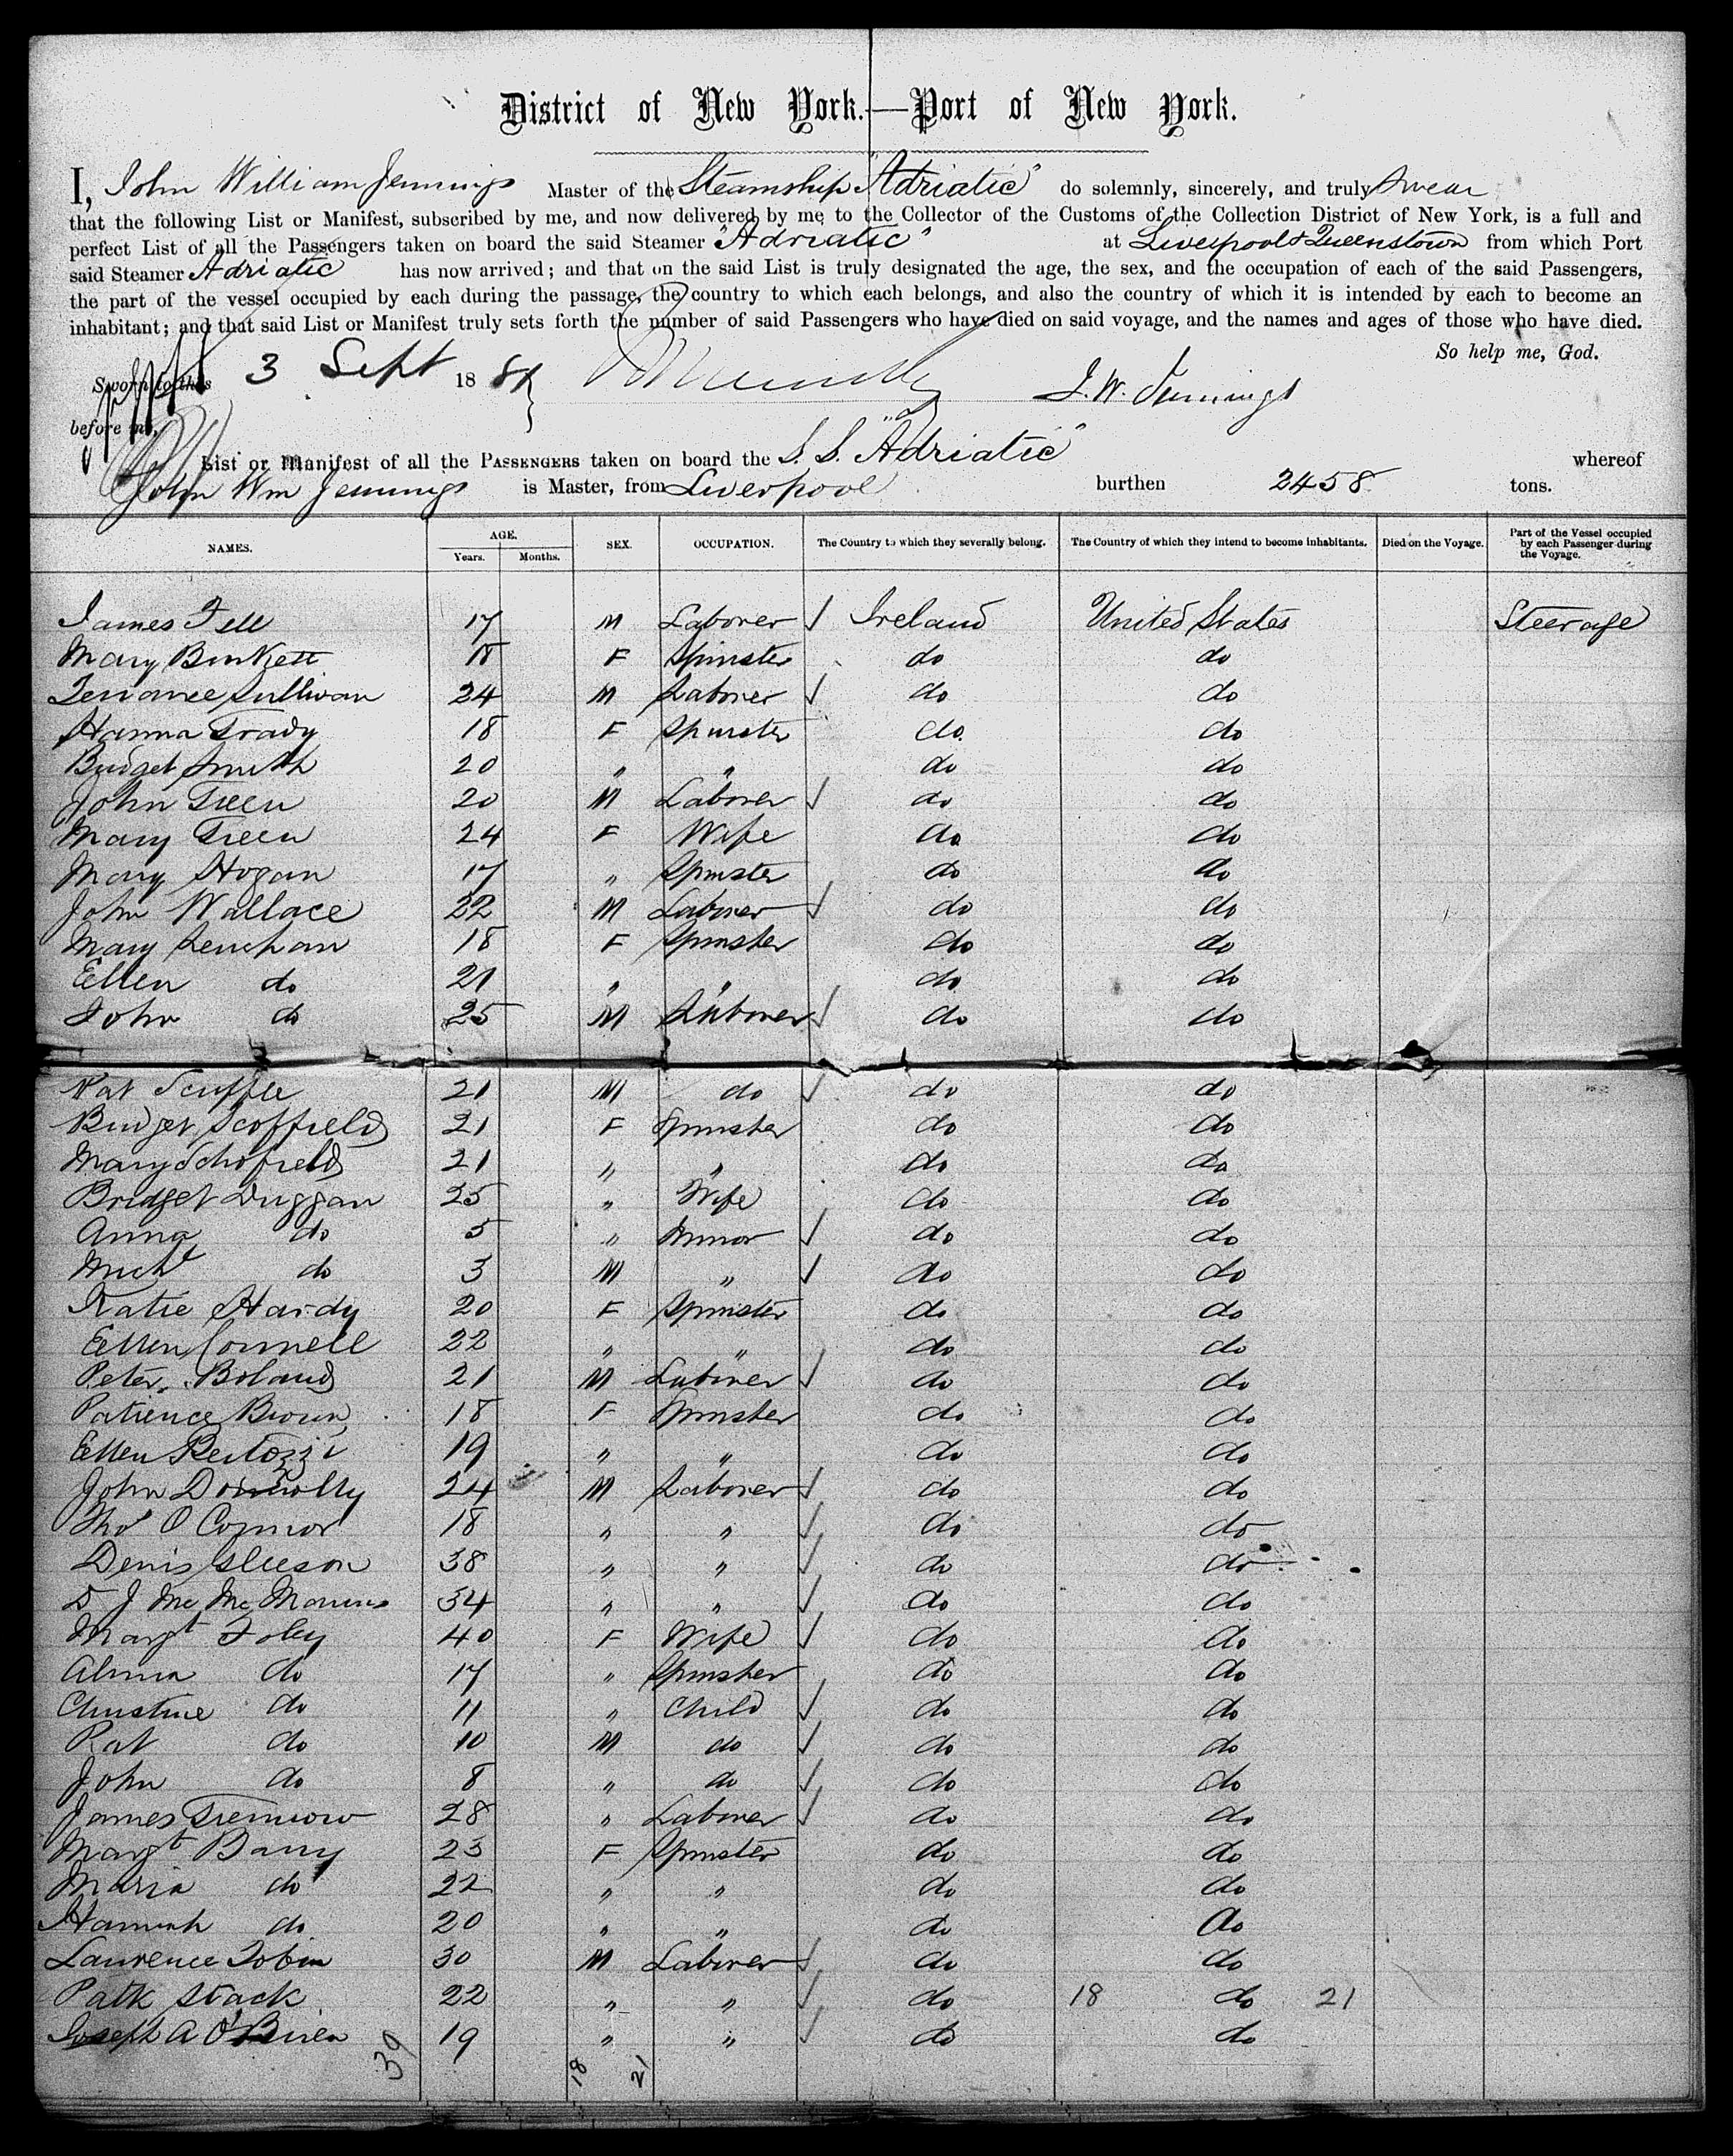 District of New York.—Port of New York.
I, John William Jennings Master of the Steamship "Adriatic" do solemnly, sincerely, and truly swear
that the following List or Manifest, subscribed by me, and now delivered by me to the Collector of the Customs of the Collection District of New York, is a full and
perfect List of all the Passengers taken on board the said Steamer "Adriatic" at Liverpool & Queenstown from which Port
said Steamer Adriatic has now arrived; and that on the said List is truly designated the age, the sex, and the occupation of each of the said Passengers,
the part of the vessel occupied by each during the passage, the country to which each belongs, and also the country of which it is intended by each to become an
inhabitant; and that said List or Manifest truly sets forth the number of said Passengers who have died on said voyage, and the names and ages of those who have died.
So help me, God.
Sworn to this 3 Sept 18
J. W. Jennings
before me,
List or Manifest of all the Passengers taken on board the S. S. "Adriatic" whereof
John Wm Jennings is Master, from Liverpool burthen 2458 tons.
NAMES. AGE. Years. Months. SEX. OCCUPATION. The Country to which they severally belong. The Country of which they intend to become inhabitants. Died on the Voyage. Part of the Vessel occupied by each Passenger during the Voyage.
James Fell 17 M Laborer Ireland United States Steerage
Mary 18 F Spinster do do
Terrance Sullivan 24 M Laborer do do
Hanna Grady 18 F Spinster do do
Bridget Smith 20 " " do do
John Green 20 M Laborer do do
Mary Green 24 F Wife do do
Mary Hogan 17 " Spinster do do
John Wallace 22 M Laborer do do
Mary Lenehan 18 F Spinster do do
Ellen do 21 " " do do
John do 25 M Laborer do do
Pat Scuffle 21 M do do do
Bridget Scoffield 21 F Spinster do do
Mary Schofield 21 " " do do
Bridget Duggan 25 " Wife do do
Anna do 5 " Minor do do
Michl do 3 M " do do
Katie Hardy 20 F Spinster do do
Ellen Connell 22 " " do do
Peter Boland 21 M Laborer do do
Patience Brown 18 F Spinster do do
Ellen 19 " " do do
John 24 M Laborer do do
Thos O Connor 18 " " do do
Denis Gleeson 38 " " do do
J Mc Mc Manus 34 " " do do
Margt Foley 40 F Wife do do
do 17 " Spinster do do
Christine do 11 " Child do do
Pat do 10 M do do do
John do 8 " do do do
James 28 " Laborer do do
Margt Barry 23 F Spinster do do
Maria do 22 " " do do
Hannah do 20 " " do do
Laurence Tobin 30 M Laborer do do
Patk Stack 22 " " do 18 do 21
Joseph A O'Brien 19 " " do do
39 18 21